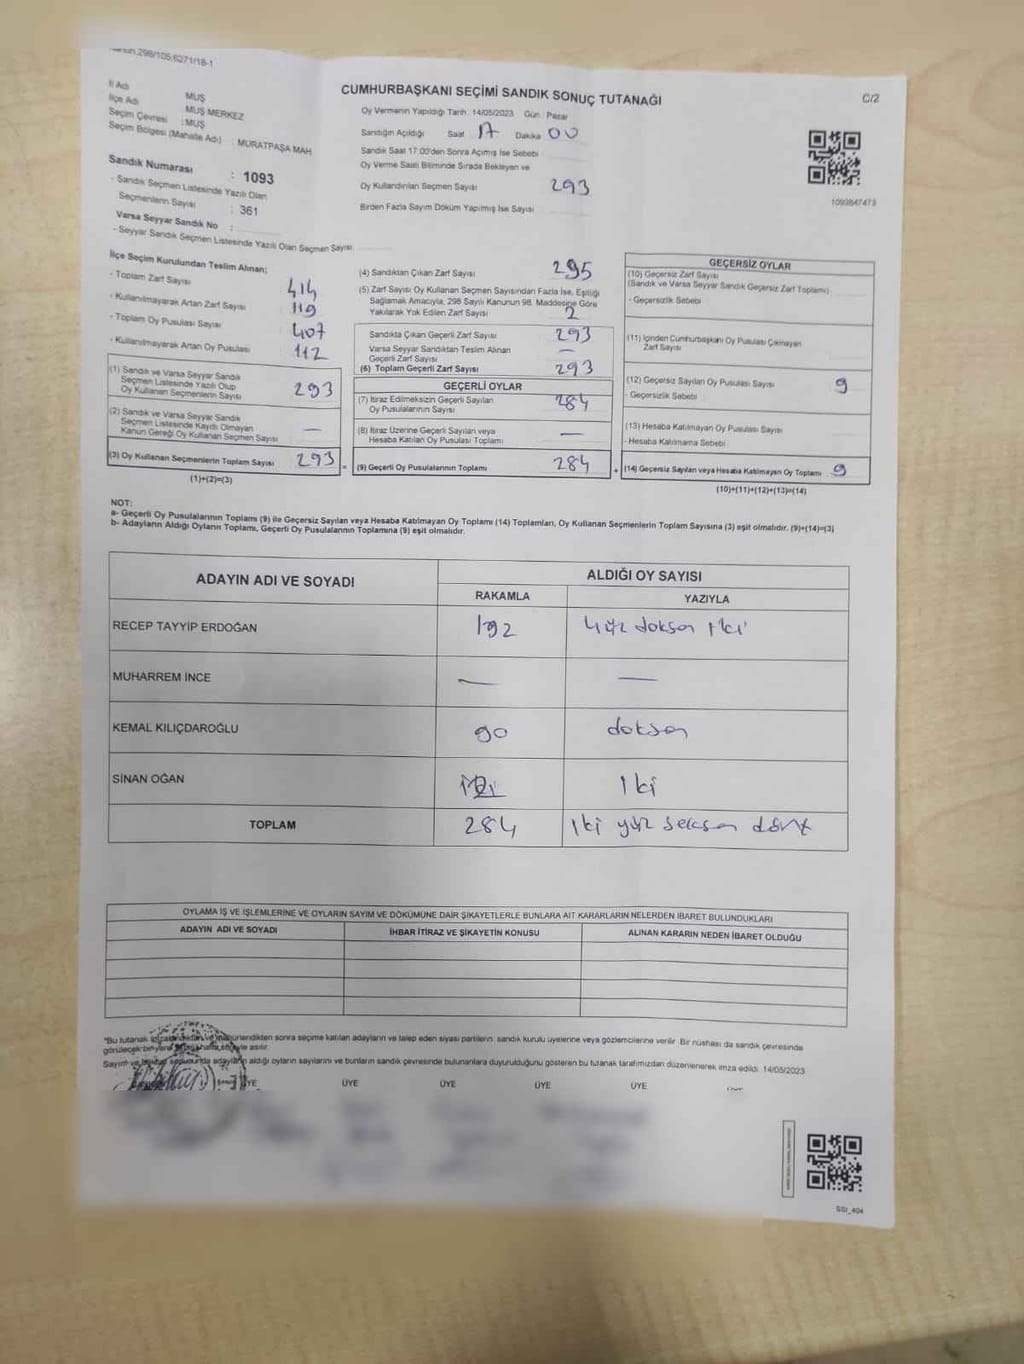 CUMHURBAŞKANI SEÇİMİ SANDIK SONUÇ TUTANAĞI
C/2
İl Adı MUŞ
İlçe Adı MUŞ MERKEZ
Seçim Çevresi : MUŞ
Seçim Bölgesi (Mahalle Adı) : MURATPAŞA MAH
Sandık Numarası : 1093
- Sandık Seçmen Listesinde Yazılı Olan
Seçmenlerin Sayısı : 361
Varsa Seyyar Sandık No :
- Seyyar Sandık Seçmen Listesinde Yazılı Olan Seçmen Sayısı
Oy Vermenin Yapıldığı Tarih : 14/05/2023 Gün : Pazar
Sandığın Açıldığı Saat 17 Dakika 00
Sandık Saat 17:00'den Sonra Açımış İse Sebebi
Oy Verme Saati Bitiminde Sırada Bekleyen ve
Oy Kullandırılan Seçmen Sayısı 293
Birden Fazla Sayım Döküm Yapılmış İse Sayısı
1093847473
İlçe Seçim Kurulundan Teslim Alınan;
- Toplam Zarf Sayısı 414
- Kullanılmayarak Artan Zarf Sayısı 119
- Toplam Oy Pusulası Sayısı 407
- Kullanılmayarak Artan Oy Pusulası 112
(1) Sandık ve Varsa Seyyar Sandık
Seçmen Listesinde Yazılı Olup
Oy Kullanan Seçmenlerin Sayısı 293
(2) Sandık ve Varsa Seyyar Sandık
Seçmen Listesinde Kaydı Olmayan
Kanun Gereği Oy Kullanan Seçmen Sayısı —
(3) Oy Kullanan Seçmenlerin Toplam Sayısı 293
(1)+(2)=(3)
(4) Sandıktan Çıkan Zarf Sayısı 295
(5) Zarf Sayısı Oy Kullanan Seçmen Sayısından Fazla İse, Eşitliği
Sağlamak Amacıyla, 298 Sayılı Kanunun 98. Maddesine Göre
Yakılarak Yok Edilen Zarf Sayısı 2
Sandıkta Çıkan Geçerli Zarf Sayısı 293
Varsa Seyyar Sandıktan Teslim Alınan
Geçerli Zarf Sayısı —
(6) Toplam Geçerli Zarf Sayısı 293
GEÇERLİ OYLAR
(7) İtiraz Edilmeksizin Geçerli Sayılan
Oy Pusulalarının Sayısı 284
(8) İtiraz Üzerine Geçerli Sayılan veya
Hesaba Katılan Oy Pusulası Toplamı —
= (9) Geçerli Oy Pusulalarının Toplamı 284
GEÇERSİZ OYLAR
(10) Geçersiz Zarf Sayısı
(Sandık ve Varsa Seyyar Sandık Geçersiz Zarf Toplamı)
- Geçersizlik Sebebi
(11) İçinden Cumhurbaşkanı Oy Pusulası Çıkmayan
Zarf Sayısı
(12) Geçersiz Sayılan Oy Pusulası Sayısı 9
- Geçersizlik Sebebi
(13) Hesaba Katılmayan Oy Pusulası Sayısı
- Hesaba Katılmama Sebebi
+ (14) Geçersiz Sayılan veya Hesaba Katılmayan Oy Toplamı 9
(10)+(11)+(12)+(13)=(14)
NOT:
a- Geçerli Oy Pusulalarının Toplamı (9) ile Geçersiz Sayılan veya Hesaba Katılmayan Oy Toplamı (14) Toplamları, Oy Kullanan Seçmenlerin Toplam Sayısına (3) eşit olmalıdır. (9)+(14)=(3)
b- Adayların Aldığı Oyların Toplamı, Geçerli Oy Pusulalarının Toplamına (9) eşit olmalıdır.
ADAYIN ADI VE SOYADI ALDIĞI OY SAYISI
RAKAMLA YAZIYLA
RECEP TAYYİP ERDOĞAN 192 yüz doksan iki
MUHARREM İNCE — —
KEMAL KILIÇDAROĞLU 90 doksan
SİNAN OĞAN iki
TOPLAM 284 iki yüz seksen dört
OYLAMA İŞ VE İŞLEMLERİNE VE OYLARIN SAYIM VE DÖKÜMÜNE DAİR ŞİKAYETLERLE BUNLARA AİT KARARLARIN NELERDEN İBARET BULUNDUKLARI
ADAYIN ADI VE SOYADI İHBAR İTİRAZ VE ŞİKAYETİN KONUSU ALINAN KARARIN NEDEN İBARET OLDUĞU
*Bu tutanak sonra seçime katılan adayların ve talep eden siyasi partilerin sandık kurulu üyelerine veya gözlemcilerine verilir. Bir nüshası da sandık çevresinde
görülecek bir yere asılır.
Sayım ve adayların aldığı oyların sayılarını ve bunların sandık çevresinde bulunanlara duyurulduğunu gösteren bu tutanak tarafımızdan düzenlenerek imza edildi. 14/05/2023
ÜYE ÜYE ÜYE ÜYE ÜYE
SSI_404